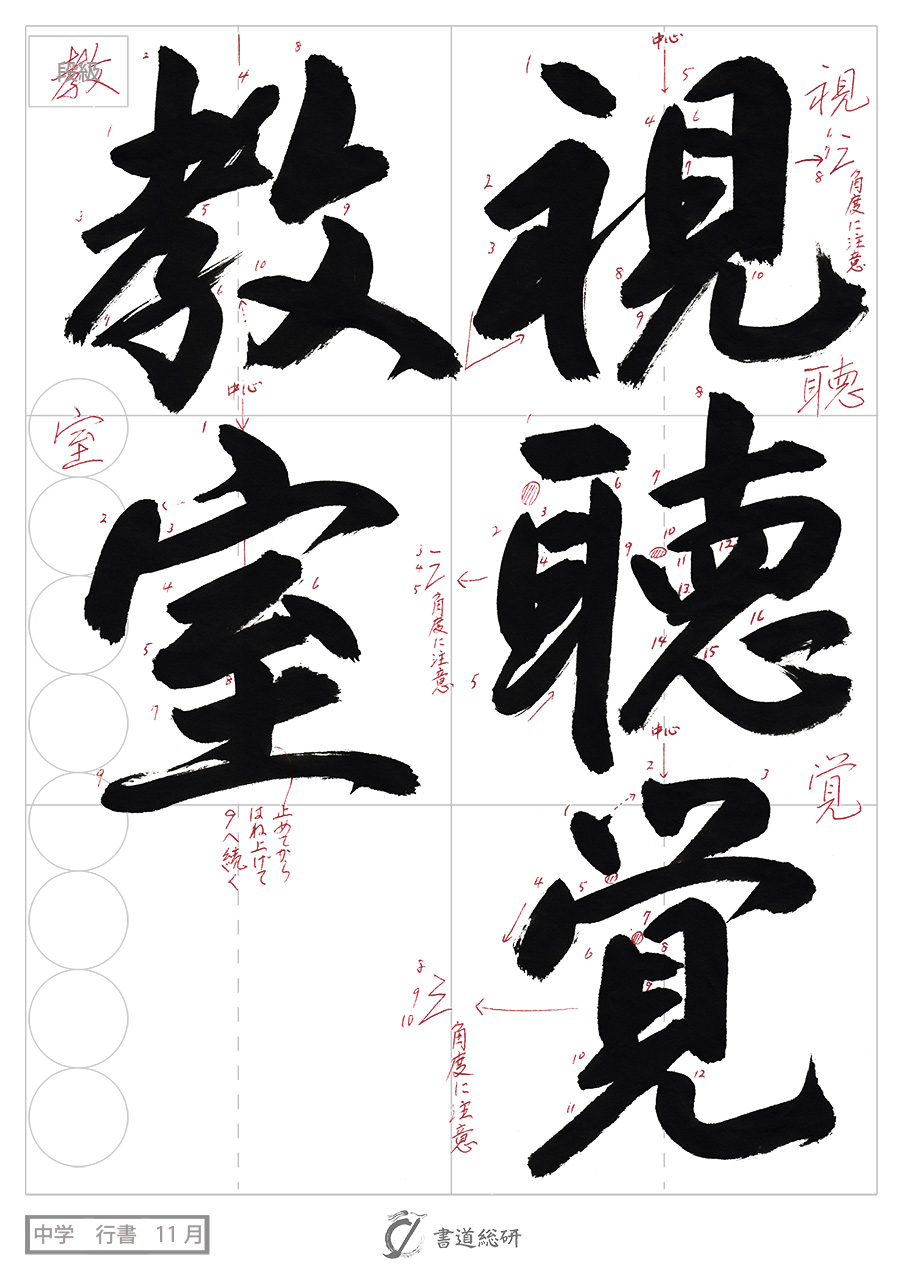 視聴覚
教室
中心
視
6
7
8
角度に注意
聴
中心
覚
3
4
5
角度に注意
8
9
10
角度に注意
段級
教
中心
室
止めてから
はね上げて
9へ続く
中学 行書 11月
書道総研